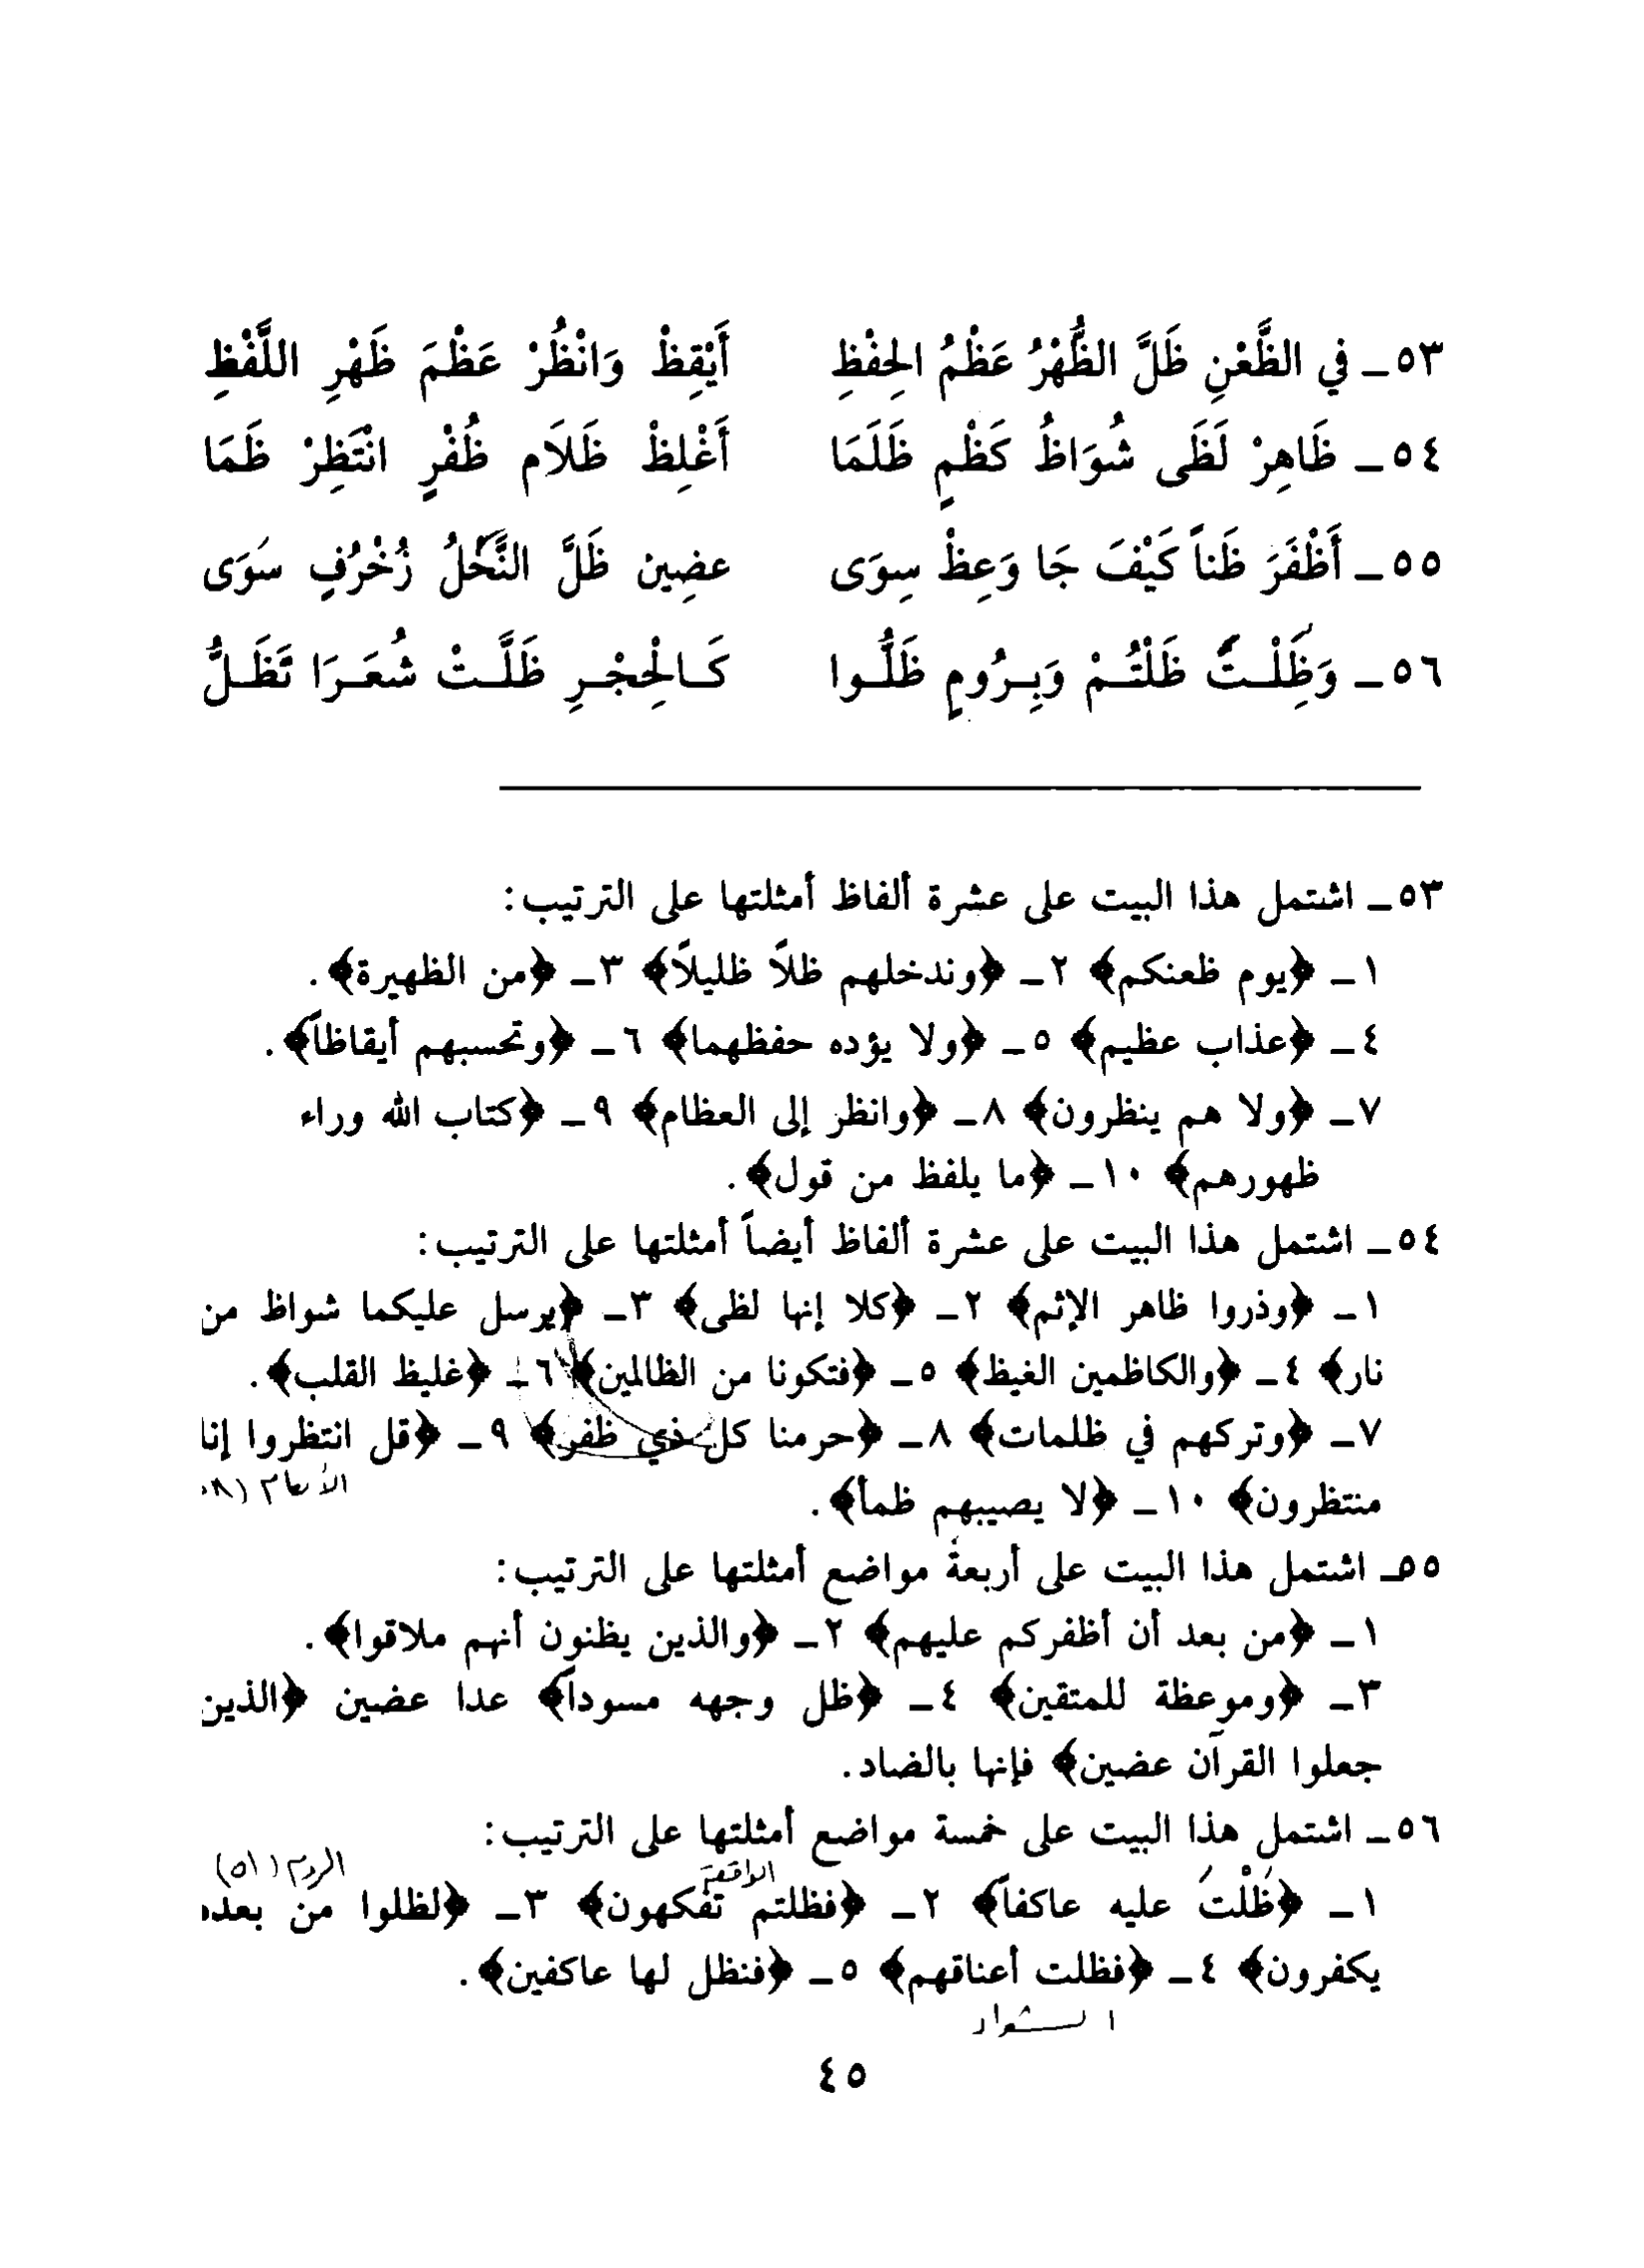 ٥٣ ـ في الظَّعْنِ ظَلَّ الظُّهْرُ عَظْمُ الحِفْظِ أَيْقِظْ وَانْظُرْ عَظْمَ ظَهْرِ اللَّفْظِ
٥٤ ـ ظَاهِرْ لَظَى شُوَاظُ كَظْمٍ ظَلَمَا أَغْلِظْ ظَلَامِ ظُفْرٍ انْتَظِرْ ظَمَا
٥٥ ـ أَظْفَرَ ظَناً كَيْفَ جَا وَعِظْ سِوَى عضِين ظَلَّ النَّحْلُ زُخْرُفٍ سَوَى
٥٦ ـ وَظَِلْـتَ ظَلْتُـمْ وَبِـرُومٍ ظَلُّـوا كَـالْحِجْـرِ ظَلَّـتْ شُعَـرَا نَظَـلُّ
٥٣ ـ اشتمل هذا البيت على عشرة ألفاظ أمثلتها على الترتيب:
١ ـ ﴿يوم ظعنكم﴾ ٢ ـ ﴿وندخلهم ظلاً ظليلاً﴾ ٣ ـ ﴿من الظهيرة﴾.
٤ ـ ﴿عذاب عظيم﴾ ٥ ـ ﴿ولا يؤده حفظهما﴾ ٦ ـ ﴿وتحسبهم أيقاظاً﴾.
٧ ـ ﴿ولا هم ينظرون﴾ ٨ ـ ﴿وانظر إلى العظام﴾ ٩ ـ ﴿كتاب الله وراء
ظهورهم﴾ ١٠ ـ ﴿ما يلفظ من قول﴾.
٥٤ ـ اشتمل هذا البيت على عشرة ألفاظ أيضاً أمثلتها على الترتيب:
١ ـ ﴿وذروا ظاهر الإثم﴾ ٢ ـ ﴿كلا إنها لظى﴾ ٣ ـ ﴿يرسل عليكما شواظ من
نار﴾ ٤ ـ ﴿والكاظمين الغيظ﴾ ٥ ـ ﴿فتكونا من الظالمين﴾ ٦ ـ ﴿غليظ القلب﴾.
٧ ـ ﴿وتركهم في ظلمات﴾ ٨ ـ ﴿حرمنا كل ذي ظفر﴾ ٩ ـ ﴿قل انتظروا إنا
منتظرون﴾ ١٠ ـ ﴿لا يصيبهم ظمأ﴾.
الأنعام
٥٥ ـ اشتمل هذا البيت على أربعة مواضع أمثلتها على الترتيب:
١ ـ ﴿من بعد أن أظفركم عليهم﴾ ٢ ـ ﴿والذين يظنون أنهم ملاقوا﴾.
٣ ـ ﴿وموعظة للمتقين﴾ ٤ ـ ﴿ظل وجهه مسوداً﴾ عدا عضين ﴿الذين
جعلوا القرآن عضين﴾ فإنها بالضاد.
٥٦ ـ اشتمل هذا البيت على خمسة مواضع أمثلتها على الترتيب:
الواقعة الروم (٥١)
١ ـ ﴿ظَلْتَ عليه عاكفاً﴾ ٢ ـ ﴿فظلتم تفكهون﴾ ٣ ـ ﴿لظلوا من بعده
يكفرون﴾ ٤ ـ ﴿فظلت أعناقهم﴾ ٥ ـ ﴿فنظل لها عاكفين﴾.
الشعراء
٤٥